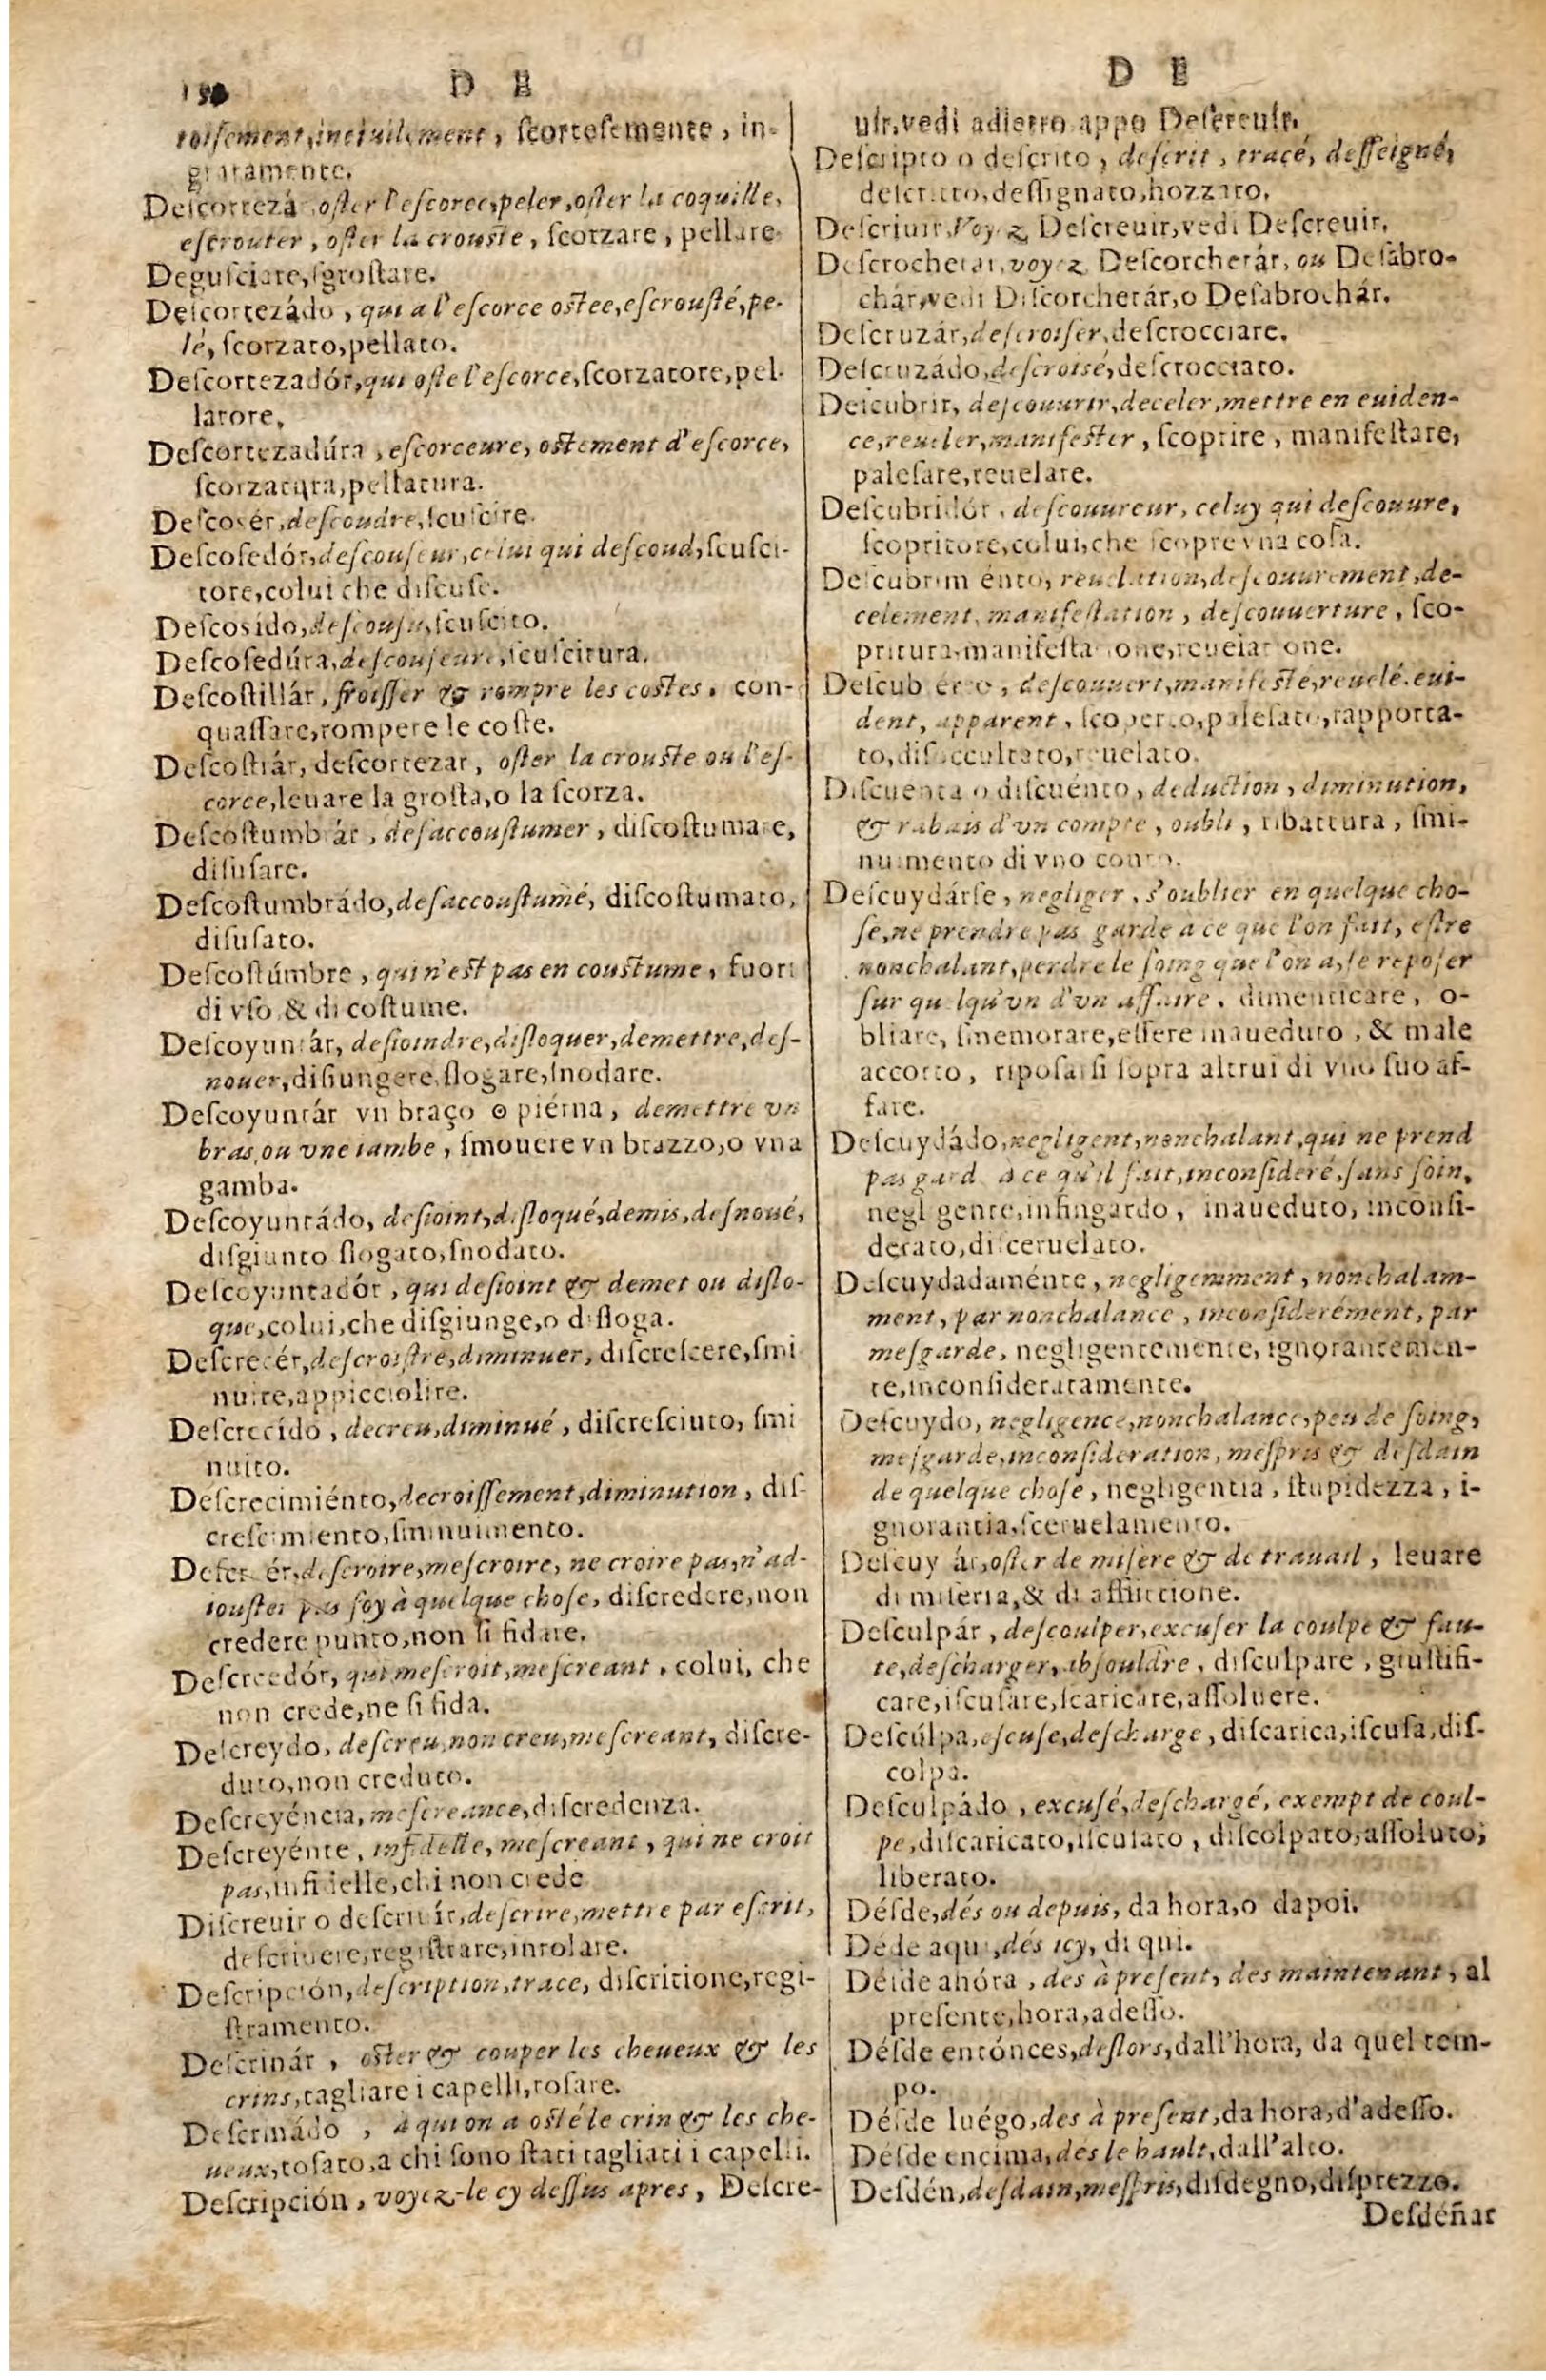 D E
toiſement, inciuilement, ſcorteſemente, in-
gratamente.
Deſcortezár, oſter l'eſcorce, peler, oſter la coquille,
eſcrouter, oſter la crouſte, ſcorzare, pellare
Deguſciare, ſgroſtare.
Deſcortezádo, qui a l'eſcorce oſtee, eſcrouſté, pe-
lé, ſcorzato, pellato.
Deſcortezadór, qui oſte l'eſcorce, ſcorzatore, pel-
latore,
Deſcortezadúra, eſcorceure, oſtement d'eſcorce,
ſcorzatura, pellatura.
Deſcosér, deſcoudre, ſcuſcire.
Deſcoſedór, deſcouſeur, celui qui deſcoud, ſcuſci-
tore, colui che diſcuſe.
Deſcosido, deſcouſu, ſcuſcito.
Deſcoſedúra, deſcouſeure, ſcuſcitura.
Deſcoſtillár, froiſſer & rompre les coſtes, con-
quaſſare, rompere le coſte.
Deſcoſtrár, deſcortezar, oſter la crouſte ou l'eſ-
corce, leuare la groſta, o la ſcorza.
Deſcoſtumbrár, deſaccouſtumer, diſcoſtumare,
diſuſare.
Deſcoſtumbrádo, deſaccouſtumé, diſcoſtumato,
diſuſato.
Deſcoſtúmbre, qui n'eſt pas en couſtume, fuori
di vſo & di coſtume.
Deſcoyuntár, deſioindre, diſloquer, demettre, deſ-
nouer, diſiungere, ſlogare, ſnodare.
Deſcoyuntár vn braço o piérna, demettre vn
bras, ou vne iambe, ſmouere vn brazzo, o vna
gamba.
Deſcoyuntádo, deſioint, diſloqué, demis, deſnoué,
diſgiunto ſlogato, ſnodato.
Deſcoyuntadór, qui deſioint & demet ou diſlo-
que, colui, che diſgiunge, o diſloga.
Deſcrecér, deſcroiſtre, diminuer, diſcreſcere, ſmi
nuire, appicciolire.
Deſcrecído, decreu, diminué, diſcreſciuto, ſmi
nuito.
Deſcrecimiénto, decroiſſement, diminution, diſ-
creſcimiento, ſminuimento.
Deſcreér, deſcroire, meſcroire, ne croire pas, n'ad-
iouſter pas foy à quelque choſe, diſcredere, non
credere punto, non ſi fidare.
Deſcreedór, qui meſcroit, meſcreant, colui, che
non crede, ne ſi fida.
Deſcreydo, deſcreu, non creu, meſcreant, diſcre-
duto, non creduto.
Deſcreyéncia, meſcreance, diſcredenza.
Deſcreyénte, infidelle, meſcreant, qui ne croit
pas, infidelle, chi non crede
Diſcreuir o deſcriuír, deſcrire, mettre par eſcrit,
deſcriuere, regiſtrare, inrolare.
Deſcripción, deſcription, trace, diſcritione, regi-
ſtramento.
Deſcrinár, oſter & couper les cheueux & les
crins, tagliare i capelli, toſare.
Deſcrinádo, à qui on a oſté le crin & les che-
ueux, toſato, a chi ſono ſtati tagliati i capelli.
Deſcripción, voyez-le cy deſſus apres, Deſcre-
D E
uir, vedi adietro appo Deſcreuir.
Deſcripto o deſcrito, deſcrit, tracé, deſſeigné,
deſcritto, deſſignato, bozzato.
Deſcriuir, Voyez Deſcreuir, vedi Deſcreuir.
Deſcrochetar, voyez Deſcorcherár, ou Deſabro-
chár, vedi Diſcorcherár, o Deſabrochár.
Deſcruzár, deſcroiſer, deſcrocciare.
Deſcruzádo, deſcroisé, deſcrocciato.
Deſcubrir, deſcouurir, deceler, mettre en euiden-
ce, reueler, manifeſter, ſcoprire, manifeſtare,
paleſare, reuelare.
Deſcubridór, deſcouureur, celuy qui deſcouure,
ſcopritore, colui, che ſcopre vna coſa.
Deſcubrimiénto, reuelation, deſcouurement, de-
celement, manifeſtation, deſcouuerture, ſco-
pritura, manifeſtatione, reuelatione.
Deſcubierto, deſcouuert, manifeſte, reuelé, eui-
dent, apparent, ſcoperto, paleſato, rapporta-
to, diſoccultato, reuelato.
Diſcuenta o diſcuénto, deduction, diminution,
& rabais d'vn compte, oubli, ribattura, ſmi-
nuimento di vno conto.
Deſcuydárſe, negliger, s'oublier en quelque cho-
ſe, ne prendre pas garde à ce que l'on fait, eſtre
nonchalant, perdre le ſoing que l'on a, ſe repoſer
ſur quelqu'vn d'vn affaire, dimenticare, o-
bliare, ſmemorare, eſſere inaueduto, & male
accorto, ripoſarſi ſopra altrui di vno ſuo af-
fare.
Deſcuydádo, negligent, nonchalant, qui ne prend
pas garde à ce qu'il fait, inconſideré, ſans ſoin,
negligente, infingardo, inaueduto, inconſi-
derato, diſceruelato.
Deſcuydadaménte, negligemment, nonchalam-
ment, par nonchalance, inconſiderément, par
meſgarde, negligentemente, ignorantemen-
te, inconſideratamente.
Deſcuydo, negligence, nonchalance, peu de ſoing,
meſgarde, inconſideration, meſpris & deſdain
de quelque choſe, negligentia, ſtupidezza, i-
gnorantia, ſceruelamento.
Deſcuy ár, oſter de miſere & de trauail, leuare
di miſeria, & di afflittione.
Deſculpár, deſcoulper, excuſer la coulpe & fau-
te, deſcharger, abſouldre, diſculpare, giuſtifi-
care, iſcuſare, ſcaricare, aſſoluere.
Deſcúlpa, eſcuſe, deſcharge, diſcarica, iſcuſa, diſ-
colpa.
Deſculpádo, excuſé, deſchargé, exempt de coul-
pe, diſcaricato, iſcuſato, diſcolpato, aſſoluto,
liberato.
Déſde, dés ou depuis, da hora, o dapoi.
Déde aqui, dés icy, di qui.
Déſde ahóra, des à preſent, des maintenant, al
preſente, hora, adeſſo.
Déſde entónces, deſlors, dall'hora, da quel tem-
po.
Déſde luégo, des à preſent, da hora, d'adeſſo.
Déſde encima, dés le hault, dall'alto.
Deſdén, deſdain, meſpris, diſdegno, diſprezzo.
Deſdéñar